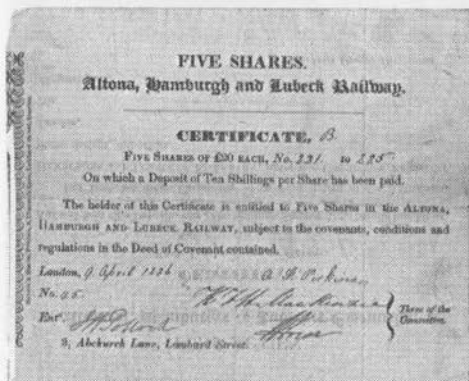 FIVE SHARES.
Altona, Hamburgh and Lubeck Railway.
CERTIFICATE, B
FIVE SHARES OF £20 EACH, No. 221. to 225
On which a Deposit of Ten Shillings per Share has been paid.
The holder of this Certificate is entitled to Five Shares in the ALTONA,
HAMBURGH AND LUBECK RAILWAY, subject to the covenants, conditions and
regulations in the Deed of Covenant contained.
London, 9 April 1836
No. 25.
Three of the
Committee.
Entd
3, Abchurch Lane, Lombard Street.